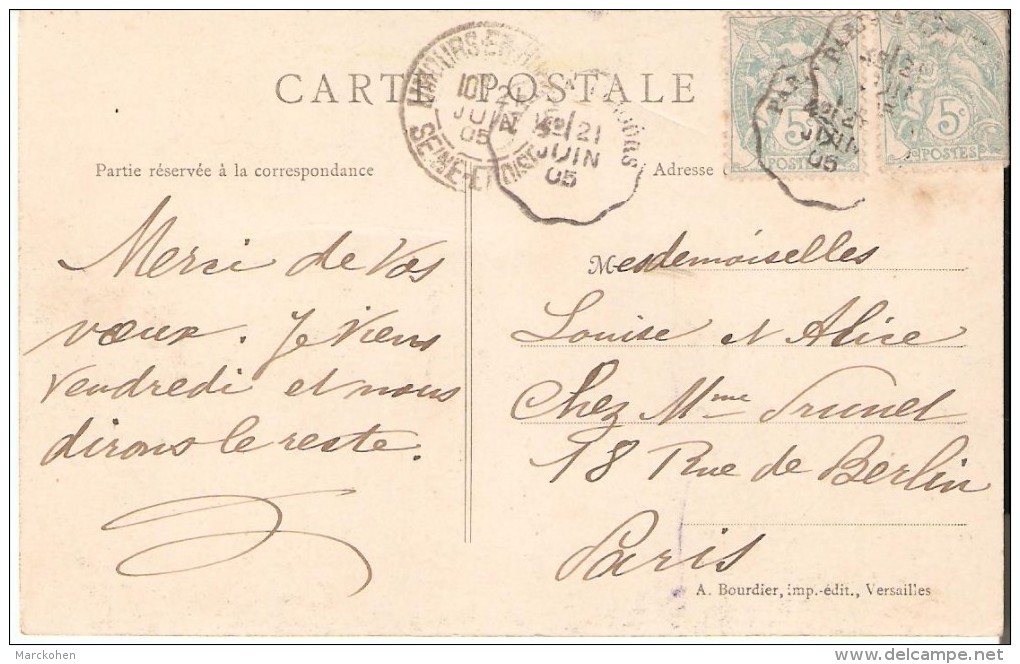 CARTE POSTALE
LIMOURS-EN-
10E 21
JUIN
05
SEINE-ET-OISE
21
JUIN
05
21
JUIN
05
5c
POSTES
5c
POSTES
Partie réservée à la correspondance
Adresse
Merci de Vos
vœux. Je Viens
Vendredi et nous
dirons le reste.
Mesdemoiselles
Louise et Alice
Chez Mme Prunet
18 Rue de Berlin
Paris
A. Bourdier, imp.-édit., Versailles
Marckohen